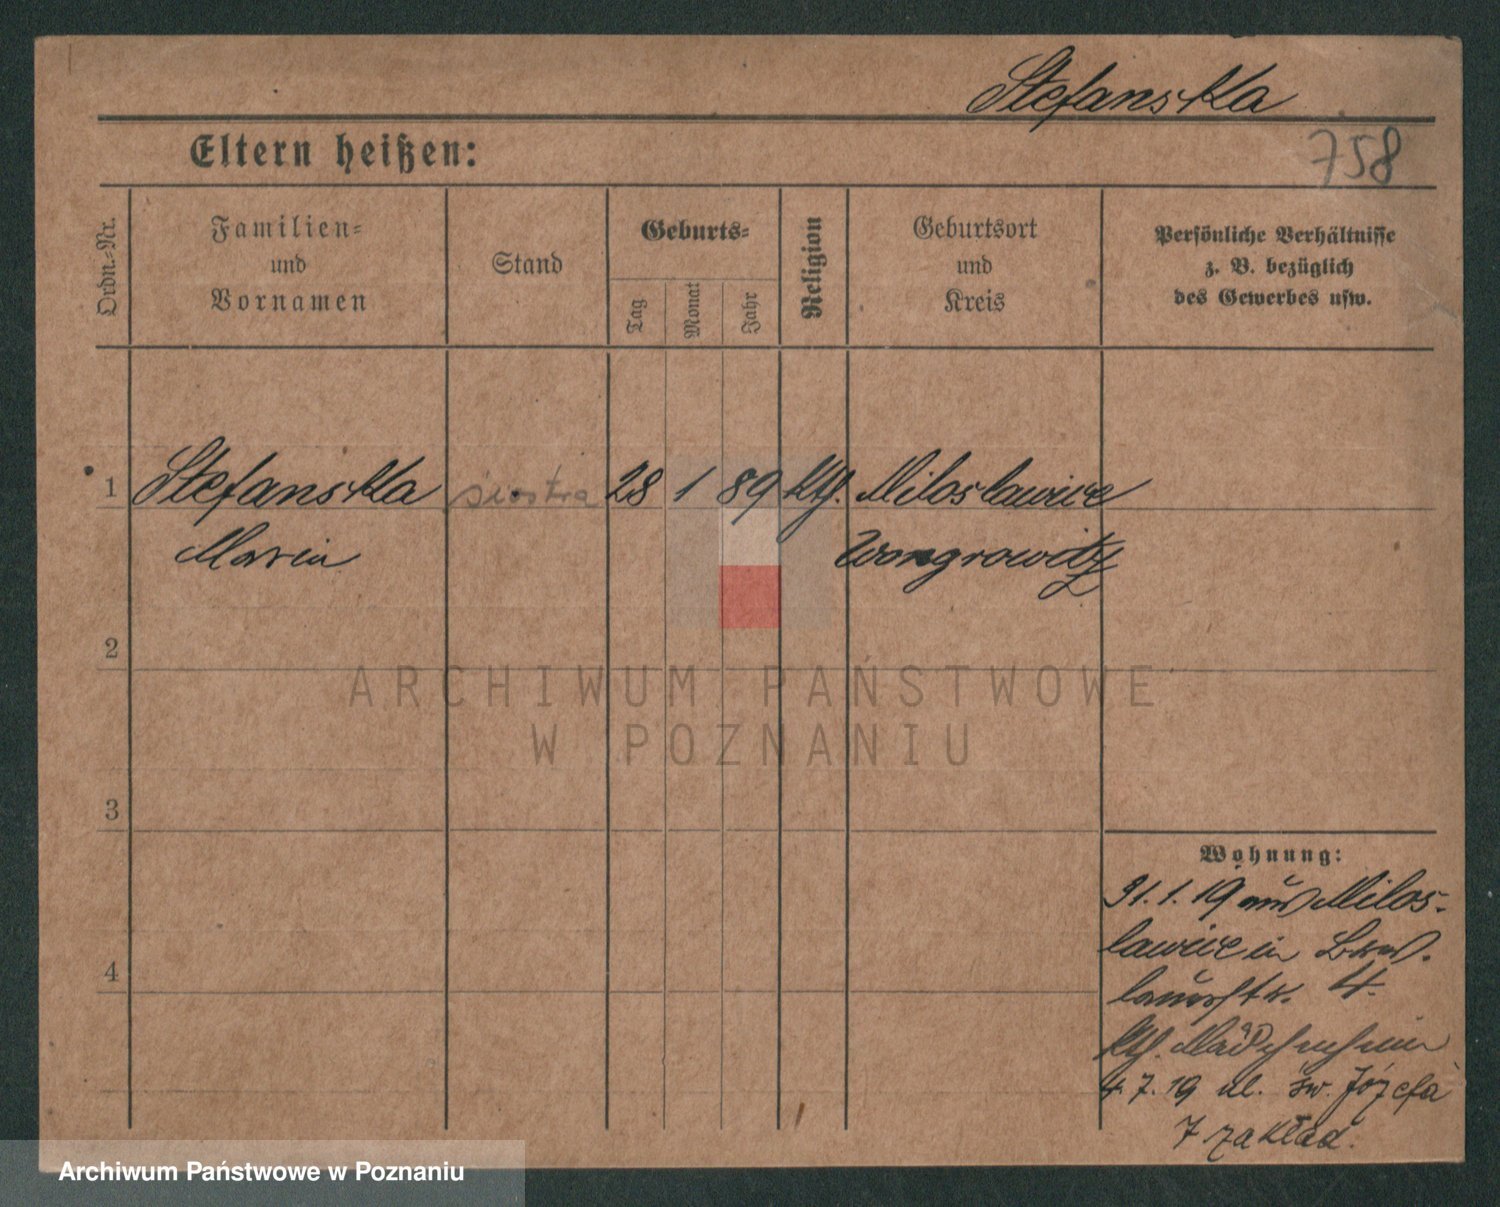 Stefanska
758
Eltern heißen:
Ordn.-Nr.
Familien-
und
Vornamen
Stand
Geburts-
Tag
Monat
Jahr
Religion
Geburtsort
und
Kreis
Persönliche Verhältnisse
z. B. bezüglich
des Gewerbes usw.
1 Stefanska siostra 28 1 89 kth. Miloslawice
Maria Wongrowitz
2
3
4
Wohnung:
31.1.19 aus Milos-
lawice in
4.
kth. Mädchenheim
4.7.19 ul. św. Józefa
7 zakład.
ARCHIWUM PAŃSTWOWE
W POZNANIU
Archiwum Państwowe w Poznaniu